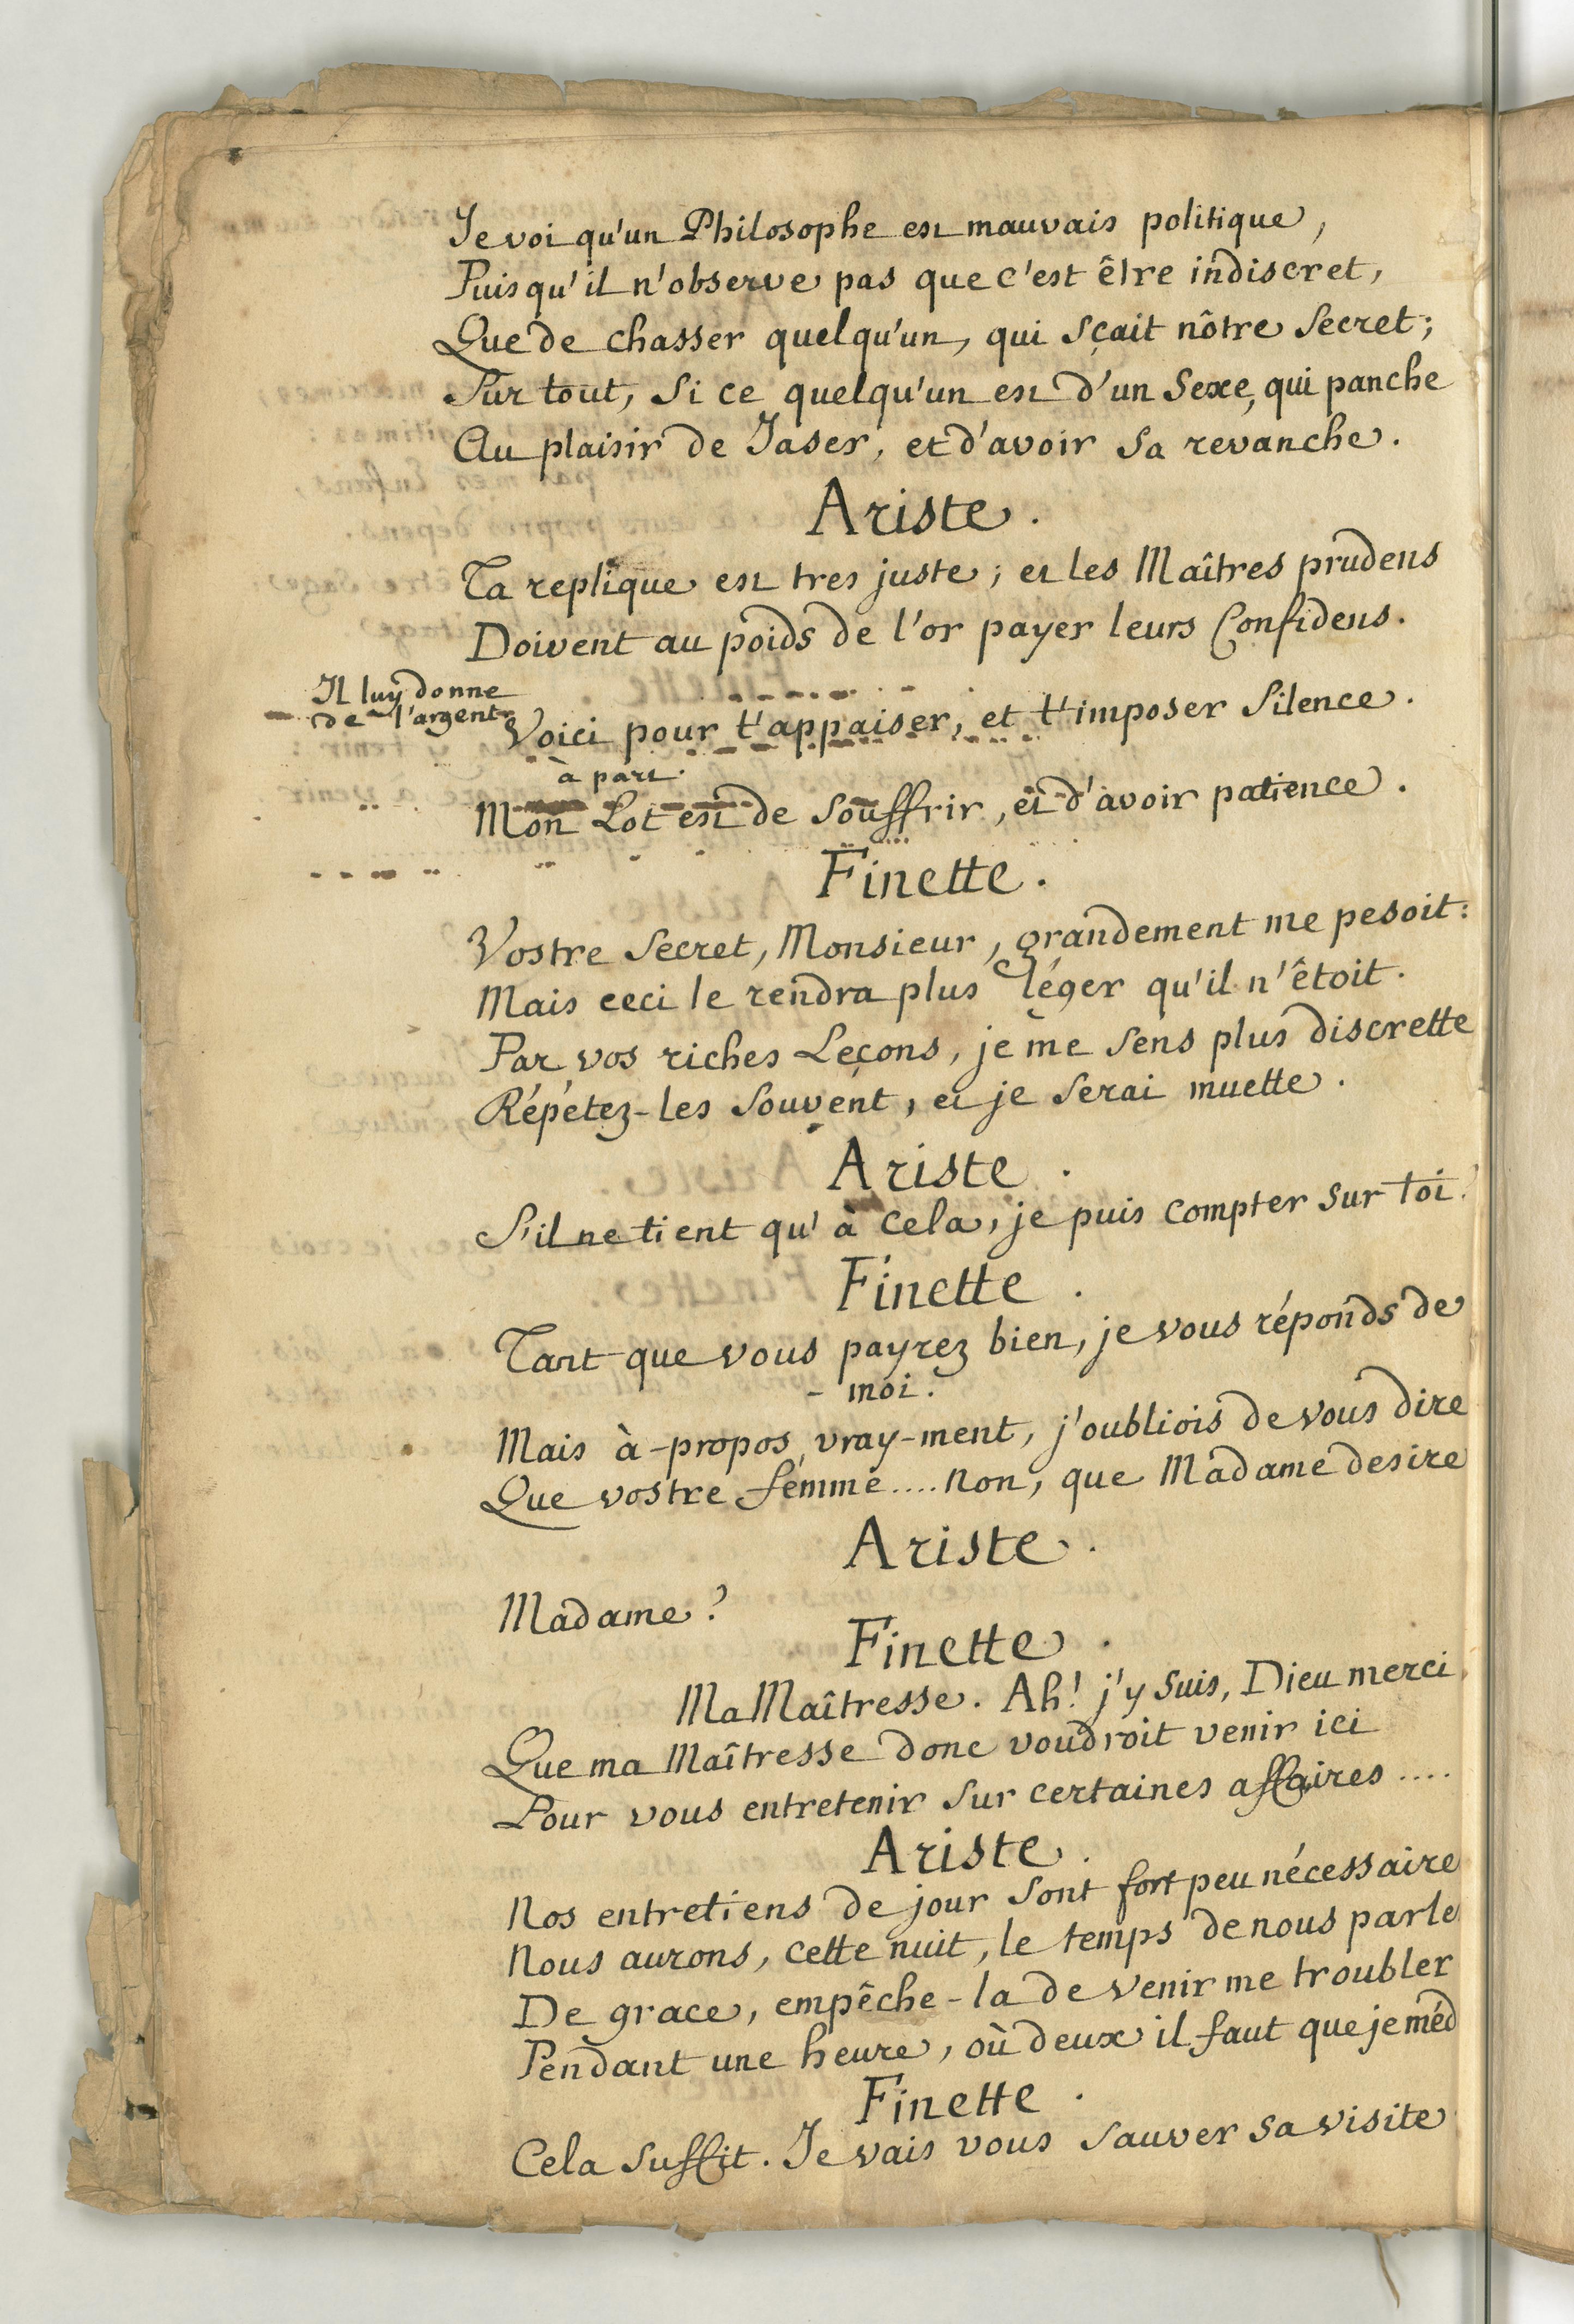 Je voi qu'un Philosophe est mauvais politique,
Puis qu'il n'observe pas que c'est être indiscret,
Que de chasser quelqu'un, qui sçait nôtre secret;
Sur tout, si ce quelqu'un est d'un sexe, qui panche
Au plaisir de Jaser, et d'avoir sa revanche.
Ariste.
Ta replique est tres juste; et les Maîtres prudens
Doivent au poids de l'or payer leurs Confidens.
Il luy donne
de l'argent
Voici pour t'appaiser, et t'imposer silence.
à part.
Mon Lot est de souffrir, et d'avoir patience.
Finette.
Vostre secret, Monsieur, grandement me pesoit:
Mais ceci le rendra plus léger qu'il n'êtoit.
Par vos riches Leçons, je me sens plus discrette
Répétez-les souvent, et je serai muette.
Ariste.
S'il ne tient qu'à cela, je puis compter sur toi.
Finette.
Tant que vous payrez bien, je vous réponds de
- moi.
Mais à-propos vray-ment, j'oubliois de vous dire
Que vostre femme.... non, que Madame desire
Ariste.
Madame?
Finette.
Ma Maîtresse. Ah! j'y suis, Dieu merci,
Que ma Maîtresse donc voudroit venir ici
Pour vous entretenir sur certaines affaires....
Ariste.
Nos entretiens de jour sont fort peu nécessaire
Nous aurons, cette nuit, le temps de nous parle
De grace, empêche-la de venir me troubler
Pendant une heure, où deux il faut que je méd
Finette.
Cela suffit. Je vais vous sauver sa visite